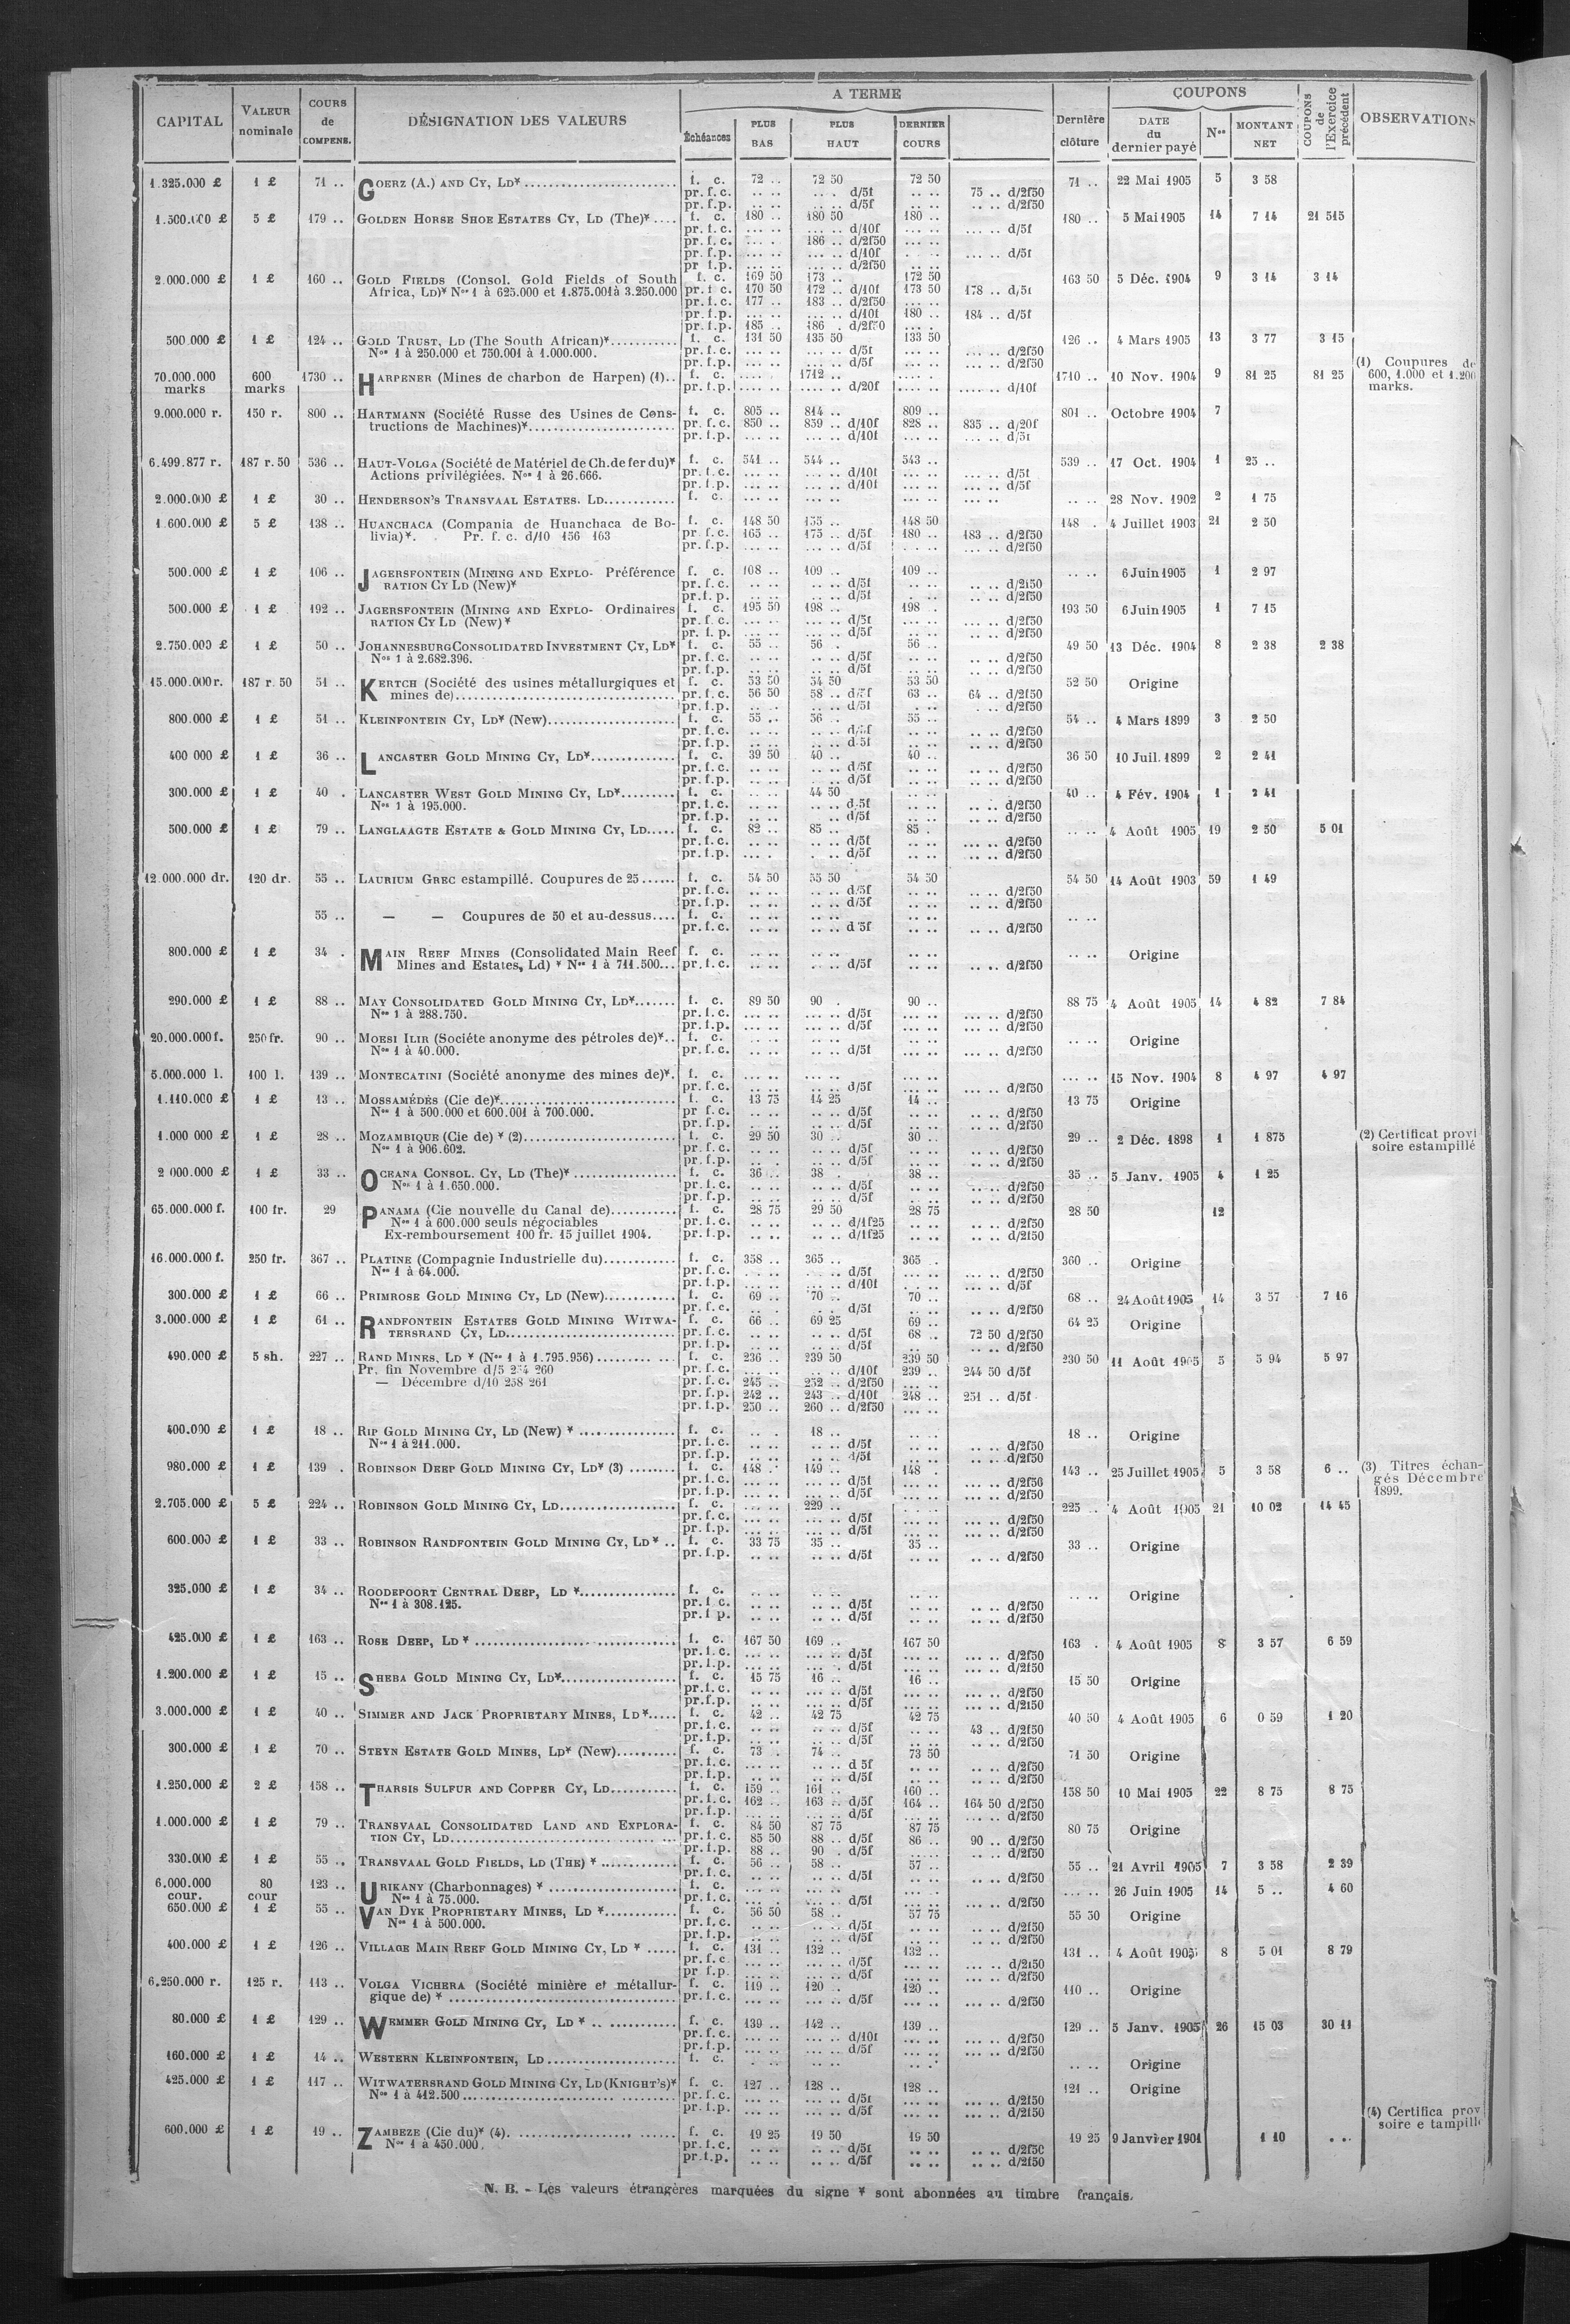 CAPITAL VALEUR nominale COURS de COMPENS. DÉSIGNATION DES VALEURS A TERME Échéances PLUS BAS PLUS HAUT DERNIER COURS Dernière clôture COUPONS DATE du dernier payé Nos MONTANT NET COUPONS de l'Exercice précédent OBSERVATIONS
1.325.000 £ 1 £ 71 .. GOERZ (A.) AND CY, LD* f. c. 72 .. 72 50 72 50 71 .. 22 Mai 1905 5 3 58
pr. f.c. d/5f 75 .. d/2f50
pr. f.p. d/5f d/2f50
1.500.000 £ 5 £ 179 .. GOLDEN HORSE SHOE ESTATES CY, LD (The)* f. c. 180 .. 180 50 180 .. 180 .. 5 Mai 1905 14 7 14 21 515
pr. f.c. d/10f d/5f
pr. f.c. 186 .. d/2f50
pr. f.p. d/10f d/5f
pr f.p. d/2f50
2.000.000 £ 1 £ 160 .. GOLD FIELDS (Consol. Gold Fields of South f. c. 169 50 173 .. 172 50 163 50 5 Déc. 1904 9 3 14 3 14
Africa, LD)* Nos 1 à 625.000 et 1.875.001 à 3.250.000 pr. f c. 170 50 172 .. d/10f 173 50 178 .. d/5f
pr. f.c. 177 .. 183 .. d/2f50
pr. f.p. d/10f 180 .. 184 .. d/5f
pr. f.p. 185 .. 186 . d/2f50
500.000 £ 1 £ 124 .. GOLD TRUST, LD (The South African)* f. c. 131 50 135 50 133 50 126 .. 4 Mars 1905 13 3 77 3 15
Nos 1 à 250.000 et 750.001 à 1.000.000. pr. f.c. d/5f d/2f50
pr. f.p. d/5f d/2f50
70.000.000 marks 600 marks 1730 .. HARPENER (Mines de charbon de Harpen) (1).. f. c. 1712 .. 1710 .. 10 Nov. 1904 9 81 25 81 25 (1) Coupures de 600, 1.000 et 1.200 marks.
pr. f.p. d/20f d/10f
9.000.000 r. 150 r. 800 .. HARTMANN (Société Russe des Usines de Cons- f. c. 805 .. 814 .. 809 .. 801 .. Octobre 1904 7
tructions de Machines)* pr. f.c. 850 .. 859 .. d/10f 828 .. 835 .. d/20f
pr. f.p. d/10f d/5f
6.499.877 r. 187 r. 50 536 .. HAUT-VOLGA (Société de Matériel de Ch. de fer du)* f. c. 541 .. 544 .. 543 .. 539 .. 17 Oct. 1904 1 25 ..
Actions privilégiées. Nos 1 à 26.666. pr. f.c. d/10f d/5f
pr. f.p. d/10f d/5f
2.000.000 £ 1 £ 30 .. HENDERSON'S TRANSVAAL ESTATES. LD f. c. 28 Nov. 1902 2 1 75
1.600.000 £ 5 £ 138 .. HUANCHACA (Compania de Huanchaca de Bo- f. c. 148 50 155 .. 148 50 148 . 4 Juillet 1903 21 2 50
livia)*. Pr. f. c. d/10 156 163 pr f. c. 165 .. 175 .. d/5f 180 .. 183 .. d/2f50
pr. f.p. d/5f d/2f50
500.000 £ 1 £ 106 .. JAGERSFONTEIN (MINING AND EXPLO- Préférence f. c. 108 .. 109 .. 109 .. 6 Juin 1905 1 2 97
RATION CY LD (New)* pr. f.c. d/5f d/2f50
pr. f.p. d/5f d/2f50
500.000 £ 1 £ 192 .. JAGERSFONTEIN (MINING AND EXPLO- Ordinaires f. c. 195 50 198 .. 198 . 193 50 6 Juin 1905 1 7 15
RATION CY LD (New)* pr. f.c. d/5f d/2f50
pr. f. p. d/5f d/2f50
2.750.000 £ 1 £ 50 .. JOHANNESBURG CONSOLIDATED INVESTMENT CY, LD* f. c. 55 .. 56 . 56 .. 49 50 13 Déc. 1904 8 2 38 2 38
Nos 1 à 2.682.396. pr. f.c. d/5f d/2f50
pr. f.p. d/5f d/2f50
15.000.000 r. 187 r. 50 51 .. KERTCH (Société des usines métallurgiques et f. c. 53 50 54 50 53 50 52 50 Origine
mines de) pr. f.c. 56 50 58 .. d/5f 63 .. 64 .. d/2f50
pr. f.p. d/5f d/2f50
800.000 £ 1 £ 51 .. KLEINFONTEIN CY, LD* (New) f. c. 55 .. 56 .. 55 .. 54 .. 4 Mars 1899 3 2 50
pr. f.c. d/5f d/2f50
pr. f.p. d/5f d/2f50
400 000 £ 1 £ 36 .. LANCASTER GOLD MINING CY, LD* f. c. 39 50 40 .. 40 .. 36 50 10 Juil. 1899 2 2 41
pr. f.c. d/5f d/2f50
pr. f.p. d/5f d/2f50
300.000 £ 1 £ 40 . LANCASTER WEST GOLD MINING CY, LD* f. c. 44 50 40 .. 4 Fév. 1904 1 2 41
Nos 1 à 195.000. pr. f.c. d/5f d/2f50
pr. f.p. d/5f d/2f50
500.000 £ 1 £ 79 .. LANGLAAGTE ESTATE & GOLD MINING CY, LD f. c. 82 .. 85 .. 85 . 4 Août 1905 19 2 50 5 01
pr. f.c. d/5f d/2f50
pr. f.p. d/5f d/2f50
12.000.000 dr. 120 dr. 55 .. LAURIUM GREC estampillé. Coupures de 25 f. c. 54 50 55 50 54 50 54 50 14 Août 1903 59 1 49
pr. f.c. d/5f d/2f50
pr. f.p. d/5f d/2f50
55 .. — — Coupures de 50 et au-dessus f. c.
pr. f.c. d/5f d/2f50
800.000 £ 1 £ 34 . MAIN REEF MINES (Consolidated Main Reef f. c. Origine
Mines and Estates, Ld) * Nos 1 à 711.500 pr. f.c. d/5f d/2f50
290.000 £ 1 £ 88 .. MAY CONSOLIDATED GOLD MINING CY, LD* f. c. 89 50 90 . 90 .. 88 75 4 Août 1905 14 4 82 7 84
Nos 1 à 288.750. pr. f.c. d/5f d/2f50
pr. f.p. d/5f d/2f50
20.000.000 f. 250 fr. 90 .. MOESI ILIR (Sociéte anonyme des pétroles de)* f. c. Origine
Nos 1 à 40.000. pr. f.c. d/5f d/2f50
5.000.000 l. 100 l. 139 .. MONTECATINI (Société anonyme des mines de)*. f. c. 15 Nov. 1904 8 4 97 4 97
pr. f.c. d/5f d/2f50
1.110.000 £ 1 £ 13 .. MOSSAMÉDÈS (Cie de)* f. c. 13 75 14 25 14 .. 13 75 Origine
Nos 1 à 500.000 et 600.001 à 700.000. pr f.c. d/5f d/2f50
pr. f.p. d/5f d/2f50
1.000 000 £ 1 £ 28 .. MOZAMBIQUE (Cie de) * (2) f. c. 29 50 30 .. 30 .. 29 .. 2 Déc. 1898 1 1 875 (2) Certificat provi
Nos 1 à 906.602. pr. f.c. d/5f d/2f50 soire estampillé
pr. f.p. d/5f d/2f50
2 000.000 £ 1 £ 33 .. OCEANA CONSOL. CY, LD (The)* f. c. 36 .. 38 . 38 .. 35 .. 5 Janv. 1905 4 1 25
Nos 1 à 1.650.000. pr. f.c. d/5f d/2f50
pr. f.p. d/5f d/2f50
65.000.000 f. 100 fr. 29 PANAMA (Cie nouvelle du Canal de) f. c. 28 75 29 50 28 75 28 50 12
Nos 1 à 600.000 seuls négociables pr. f.c. d/1f25 d/2f50
Ex-remboursement 100 fr. 15 juillet 1904. pr. f.p. d/1f25 d/2f50
16.000.000 f. 250 fr. 367 .. PLATINE (Compagnie Industrielle du) f. c. 358 .. 365 .. 365 . 360 .. Origine
Nos 1 à 64.000. pr. f.c. d/5f d/2f50
pr. f.p. d/10f d/5f
300.000 £ 1 £ 66 .. PRIMROSE GOLD MINING CY, LD (New) f. c. 69 .. 70 .. 70 .. 68 .. 24 Août 1905 14 3 57 7 16
pr. f.c. d/5f d/2f50
3.000.000 £ 1 £ 61 .. RANDFONTEIN ESTATES GOLD MINING WITWA- f. c. 66 .. 69 25 69 .. 64 25 Origine
TERSRAND CY, LD pr. f.c. d/5f 68 .. 72 50 d/2f50
pr. f.p. d/5f d/2f50
490.000 £ 5 sh. 227 .. RAND MINES, LD * (Nos 1 à 1.795.956) f. c. 236 .. 239 50 239 50 230 50 11 Août 1905 5 5 94 5 97
Pr. fin Novembre d/5 254 260 pr. f.c. d/10f 239 .. 244 50 d/5f
— Décembre d/10 258 261 pr. f.c. 245 .. 252 .. d/2f50
pr. f.p. 242 .. 243 .. d/10f 248 .. 251 .. d/5f
pr. f.p. 250 .. 260 .. d/2f50
400.000 £ 1 £ 18 .. RIP GOLD MINING CY, LD (New) * f. c. 18 .. 18 .. Origine
Nos 1 à 211.000. pr. f.c. d/5f d/2f50
pr. f.p. d/5f d/2f50
980.000 £ 1 £ 139 . ROBINSON DEEP GOLD MINING CY, LD* (3) f. c. 148 .. 149 .. 148 . 143 .. 25 Juillet 1905 5 3 58 6 .. (3) Titres échan-
pr. f.c. d/5f d/2f50 gés Décembre
pr. f.p. d/5f d/2f50 1899.
2.705.000 £ 5 £ 224 .. ROBINSON GOLD MINING CY, LD f. c. 229 .. 225 .. 4 Août 1905 21 10 02 14 45
pr. f.c. d/5f d/2f50
pr. f.p. d/5f d/2f50
600.000 £ 1 £ 33 .. ROBINSON RANDFONTEIN GOLD MINING CY, LD* f. c. 33 75 35 .. 35 .. 33 .. Origine
pr. f.p. d/5f d/2f50
325.000 £ 1 £ 34 .. ROODEPOORT CENTRAL DEEP, LD * f. c. Origine
Nos 1 à 308.125. pr. f c. d/5f d/2f50
pr. f p. d/5f d/2f50
425.000 £ 1 £ 163 .. ROSE DEEP, LD * f. c. 167 50 169 .. 167 50 163 . 4 Août 1905 8 3 57 6 59
pr. f.c. d/5f d/2f50
pr. f.p. d/5f d/2f50
1.200.000 £ 1 £ 15 .. SHEBA GOLD MINING CY, LD* f. c. 15 75 16 .. 16 .. 15 50 Origine
pr. f.c. d/5f d/2f50
pr. f.p. d/5f d/2f50
3.000.000 £ 1 £ 40 .. SIMMER AND JACK PROPRIETARY MINES, LD* f. c. 42 .. 42 75 42 75 40 50 4 Août 1905 6 0 59 1 20
pr. f.c. d/5f 43 .. d/2f50
pr. f.p. d/5f d/2f50
300.000 £ 1 £ 70 .. STEYN ESTATE GOLD MINES, LD* (New) f. c. 73 . 74 .. 73 50 71 50 Origine
pr. f.c. d 5f d/2f50
pr. f.p. d/5f d/2f50
1.250.000 £ 2 £ 158 .. THARSIS SULFUR AND COPPER CY, LD f. c. 159 .. 161 .. 160 .. 158 50 10 Mai 1905 22 8 75 8 75
pr. f.c. 162 .. 163 .. d/5f 164 .. 164 50 d/2f50
pr. f.p. d/5f d/2f50
1.000.000 £ 1 £ 79 .. TRANSVAAL CONSOLIDATED LAND AND EXPLORA- f. c. 84 50 87 75 87 75 80 75 Origine
TION CY, LD pr. f.c. 85 50 88 .. d/5f 86 .. 90 .. d/2f50
pr. f.p. 88 .. 90 . d/5f d/2f50
330.000 £ 1 £ 55 .. TRANSVAAL GOLD FIELDS, LD (THE) * f. c. 56 .. 58 .. 57 .. 55 .. 21 Avril 1905 7 3 58 2 39
pr. f.c. d/5f d/2f50
6.000.000 cour. 80 cour 123 .. URIKANY (Charbonnages) * f. c. 26 Juin 1905 14 5 .. 4 60
Nos 1 à 75.000. pr. f.c. d/5f d/2f50
650.000 £ 1 £ 55 .. VAN DYK PROPRIETARY MINES, LD * f. c. 56 50 58 .. 57 75 55 50 Origine
Nos 1 à 500.000. pr. f.c. d/5f d/2f50
pr. f.p. d/5f d/2f50
400.000 £ 1 £ 126 .. VILLAGE MAIN REEF GOLD MINING CY, LD * f. c. 131 .. 132 .. 132 .. 131 .. 4 Août 1905 8 5 01 8 79
pr. f.c d/5f d/2f50
pr f.p. d/5f d/2f50
6.250.000 r. 125 r. 113 .. VOLGA VICHERA (Société minière et métallur- f. c. 119 .. 120 . 120 .. 110 .. Origine
gique de) * pr. f.c. d/5f d/2f50
80.000 £ 1 £ 129 .. WEMMER GOLD MINING CY, LD * f. c. 139 .. 142 .. 139 .. 129 .. 5 Janv. 1905 26 15 03 30 11
pr. f.c. d/10f d/2f50
pr. f.p. d/5f d/2f50
160.000 £ 1 £ 14 .. WESTERN KLEINFONTEIN, LD f. c. Origine
425.000 £ 1 £ 117 .. WITWATERSRAND GOLD MINING CY, LD (KNIGHT'S)* f. c. 127 .. 128 .. 128 .. 121 .. Origine
Nos 1 à 412.500 pr. f.c. d/5f d/2f50
pr. f.p. d/5f d/2f50
600.000 £ 1 £ 19 .. ZAMBEZE (Cie du)* (4). f. c. 19 25 19 50 19 50 19 25 9 Janvier 1901 1 10 (4) Certifica prov
Nos 1 à 450.000. pr. f.c. d/5f d/2f50 soire e tampillé
pr. f.p. d/5f d/2f50
N. B. - Les valeurs étrangères marquées du signe * sont abonnées au timbre français.